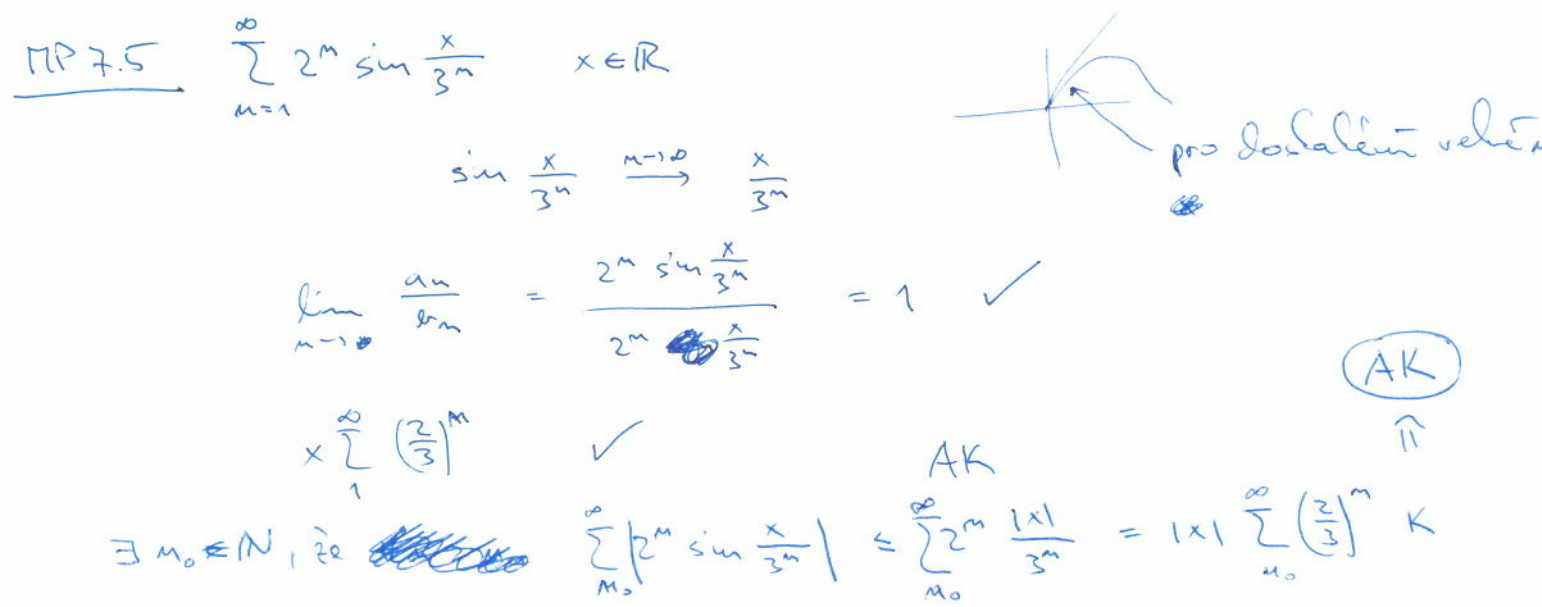 MP 7.5 ∑_{n=1}^{∞} 2^n sin x/3^n x ∈ ℝ
pro dostatečně velké n
sin x/3^n →^{n→∞} x/3^n
lim_{n→∞} a_n/b_n = (2^n sin x/3^n)/(2^n x/3^n) = 1 ✓
AK
⇑
x ∑_{1}^{∞} (2/3)^n ✓ AK
∃ n_0 ∈ ℕ, že ∑_{n_0}^{∞} |2^n sin x/3^n| ≤ ∑_{n_0}^{∞} 2^n |x|/3^n = |x| ∑_{n_0}^{∞} (2/3)^n K